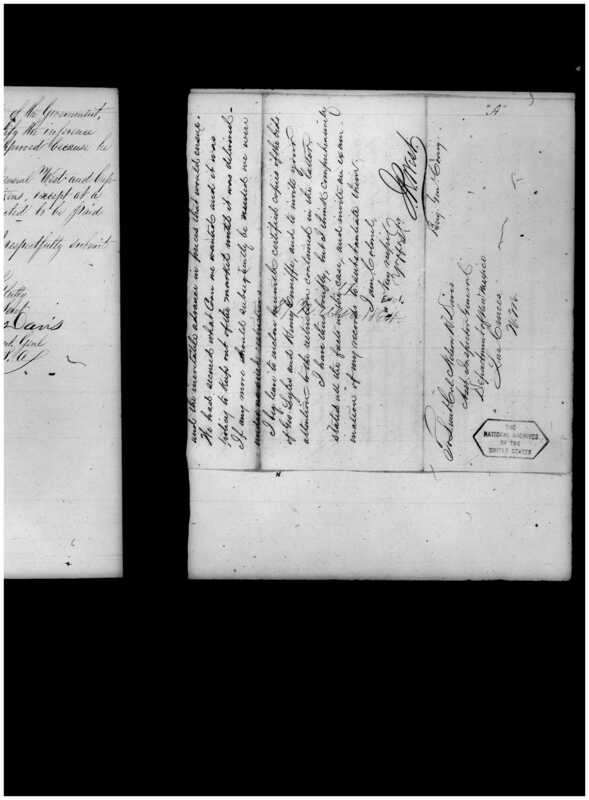 of the Government,
the inference
approved because he
General West and Cap-
except at a
to be paid
respectfully submit
Davis
Genl
"A"
and the inevitable advance in prices that would ensue.
We had secured what Corn we wanted and it was
policy to keep out of the market until it was delivered.
If any more should subsequently be needed we were
I beg leave to enclose herewith certified copies of the bids
of Geo Lyles and Henry Cuniffe, and to invite your
attention to the contained in the latter.
I have thus briefly, but I think comprehensively
stated all the facts in the case, and invite an exam-
ination of my records to substantiate them.
I am Colonel,
Very respect.
Yr Obt Svt
West
Brig Genl Comg
To Lieut Col Nelson H Davis
Asst Inspector General
Department of New Mexico
Las Cruces
N.M.
THE
NATIONAL ARCHIVES
OF THE
UNITED STATES